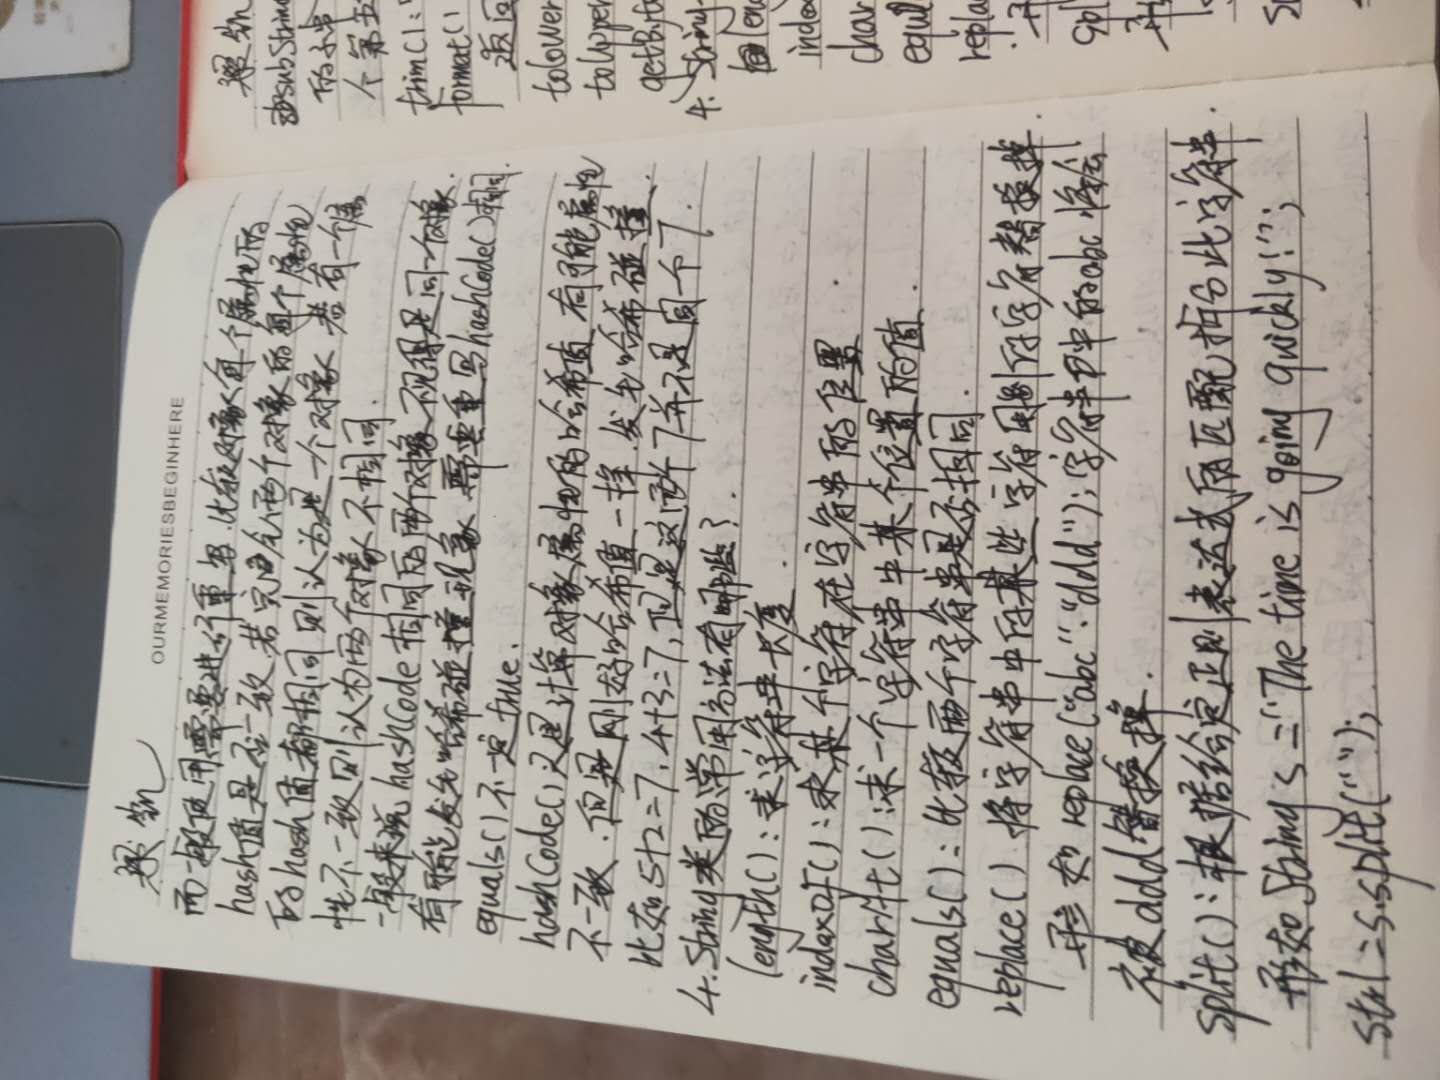 OURMEMORIESBEGINHERE
而一般使用需要进行重写.比较对象每个属性的
hash值是否一致.若完全两个对象的每个属性
的hash值都相同则认为是一个对象.若有一个属
性不一致则认为两个对象不相同.
一般来说hashCode相同的两个对象不见得是同一个对象.
有可能发生哈希碰撞现象.需要重写hashCode()相同
equals()不一定true.
hashCode()是计算对象属性的哈希值.有可能属性
不一致.但是刚好哈希值一样.发生哈希碰撞.
比如5+2=7,4+3=7,但是这两个7并不是同一个7.
4.String类的常用方法有哪些?
length():求字符串长度.
indexOf():求某个字符在字符串的位置
charAt():求一个字符串中某个位置的值.
equals():比较两个字符串是否相同.
replace().将字符串中的某些字符用别的字符替换掉.
形如replace("abc"."ddd");字符串中的abc将会
被ddd替换掉.
split():根据给定正则表达式的匹配拆分此字符串.
形如String s="The time is going quickly!";
str1=s.split(" ");
subString
trim():
format()
返回
toLower
toUpper
getByt
4.String